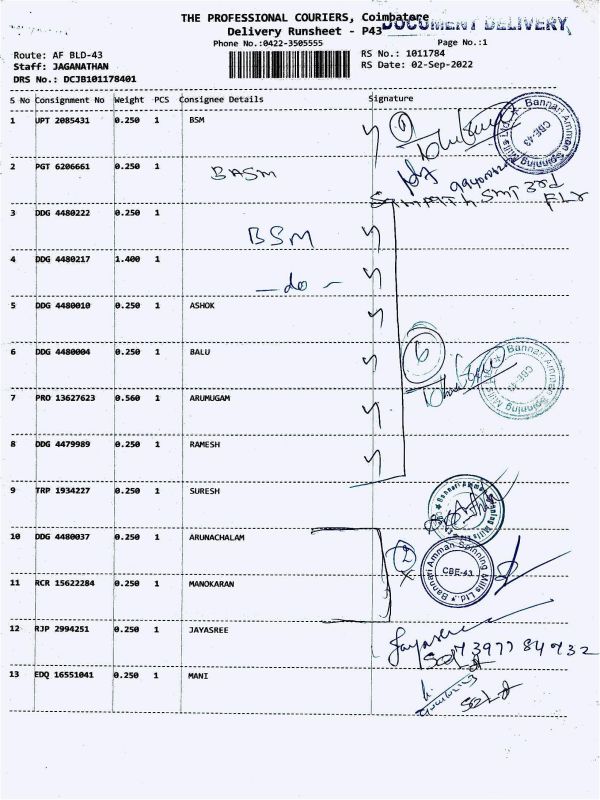 THE PROFESSIONAL COURIERS, Coimbatore
DOCUMENT DELIVERY
Delivery Runsheet - P43
Phone No.:0422-3505555
Page No.:1
Route: AF BLD-43
RS No.: 1011784
Staff: JAGANATHAN
RS Date: 02-Sep-2022
DRS No.: DCJB101178401
S No Consignment No Weight PCS Consignee Details Signature
1 UPT 2085431 0.250 1 BSM
Bannari Amman Spinning Mills Ltd. CBE-43
2 PGT 6206661 0.250 1 BASM
SAMPATH SMT 3rd FLr
3 DDG 4480222 0.250 1 BSM
4 DDG 4480217 1.400 1 - do -
5 DDG 4480010 0.250 1 ASHOK
6 DDG 4480004 0.250 1 BALU
6
Bannari Amman Spinning Mills Ltd. CBE-43
7 PRO 13627623 0.560 1 ARUMUGAM
8 DDG 4479989 0.250 1 RAMESH
9 TRP 1934227 0.250 1 SURESH
Bannari Amman Spinning Mills Ltd.
10 DDG 4480037 0.250 1 ARUNACHALAM
2
Bannari Amman Spinning Mills Ltd. CBE-43
11 RCR 15622284 0.250 1 MANOKARAN
12 RJP 2994251 0.250 1 JAYASREE
Jayasree
7397784732
13 EDQ 16551041 0.250 1 MANI